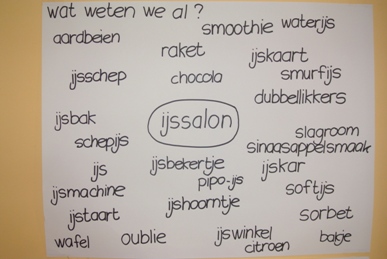 wat weten we al ?
aardbeien
smoothie
waterijs
raket
ijskaart
ijsschep
chocola
smurfijs
dubbellikkers
ijsbak
ijssalon
slagroom
schepijs
sinaasappelsmaak
ijs
ijsbekertje
ijskar
pipo-ijs
ijsmachine
softijs
ijshoorntje
ijstaart
sorbet
wafel
oublie
ijswinkel
citroen
bakje